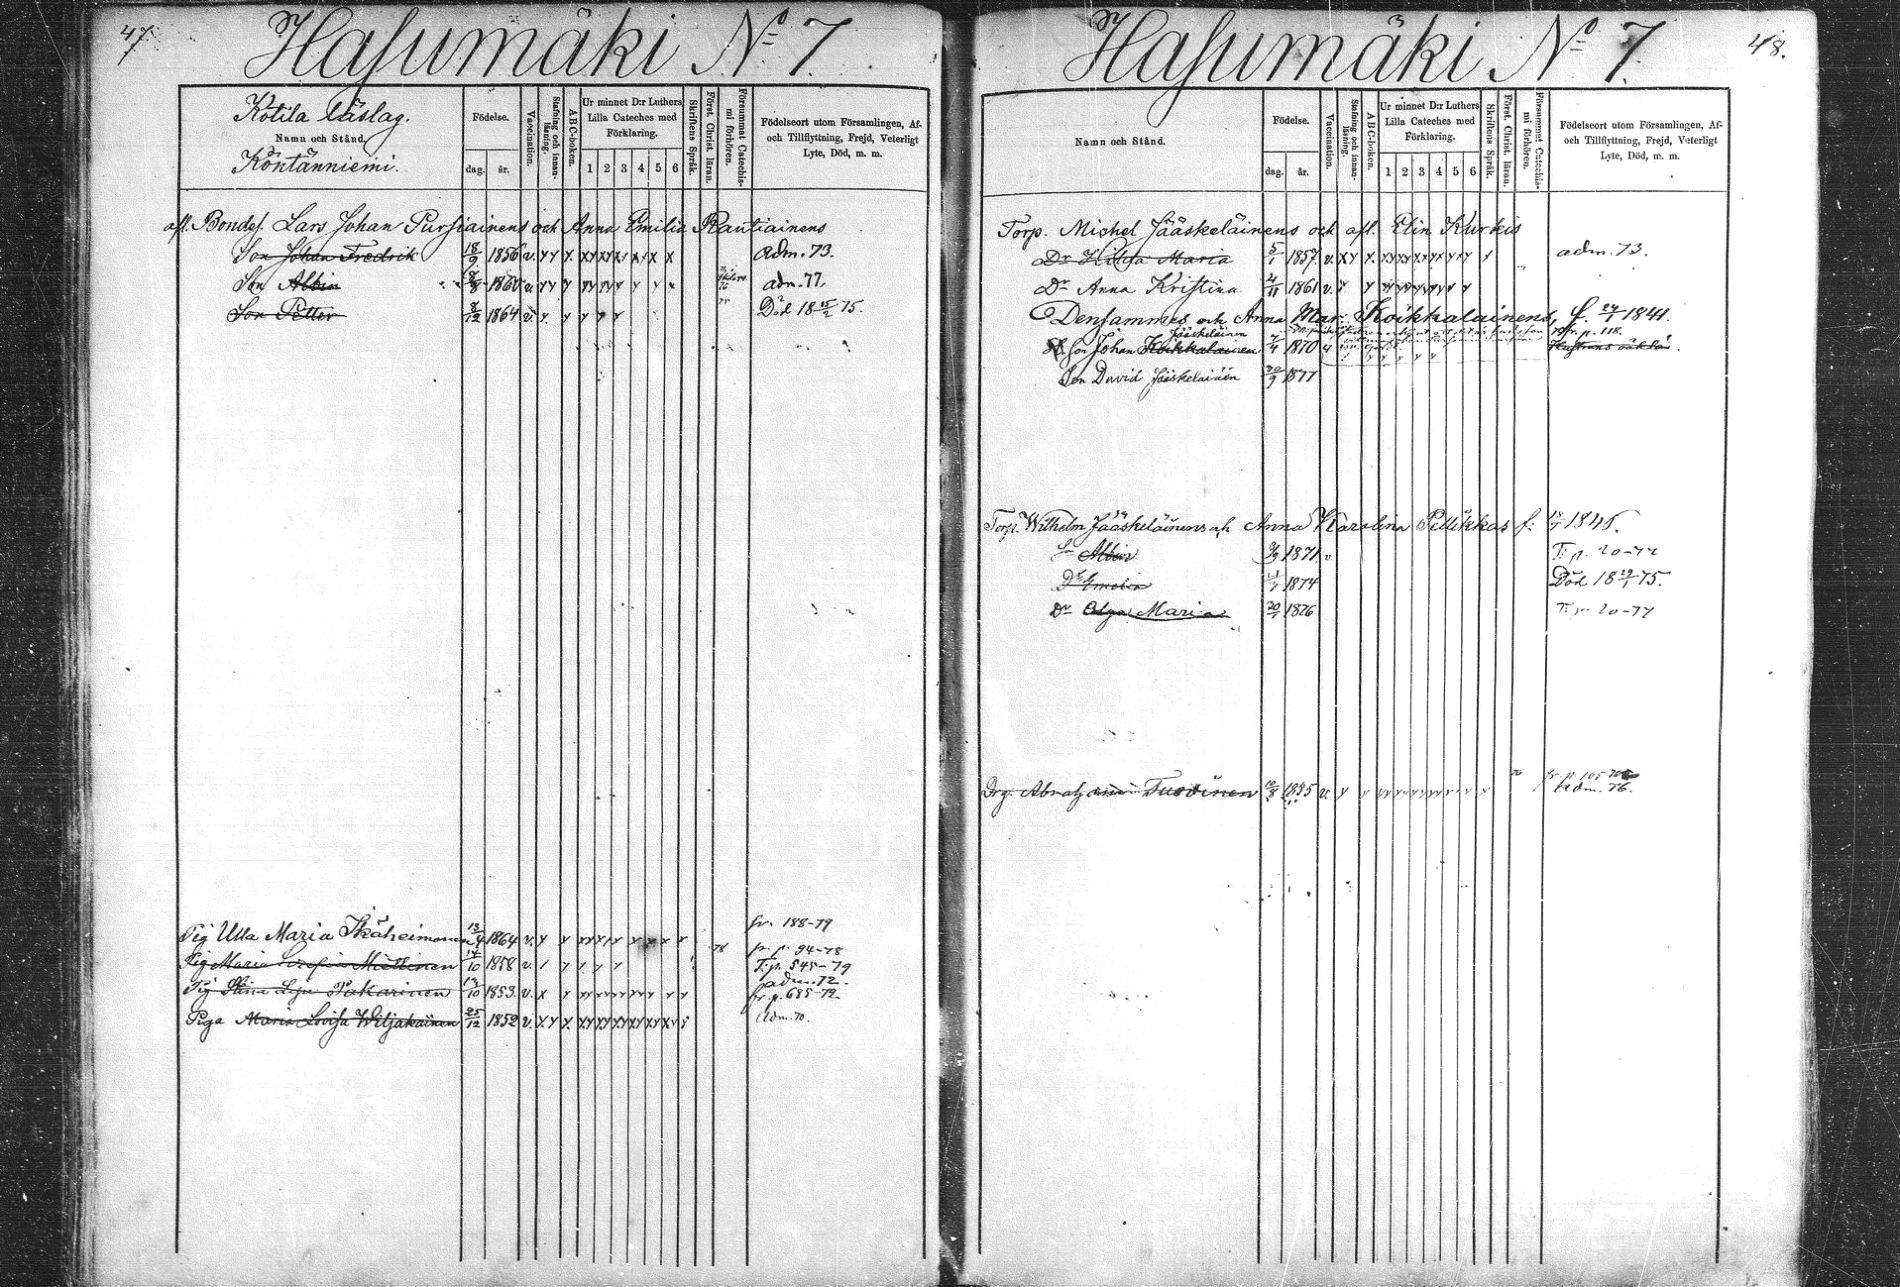 47
Hasumäki No 7
Kotila läslag.
Namn och Stånd.
Köntänniemi.
Födelse.
dag.
år.
Vaccination.
Stafning och innanläsning.
ABC-boken.
Ur minnet D:r Luthers
Lilla Cateches med
Förklaring.
1 2 3 4 5 6
Skriftens Språk.
Först. Christ. läran.
Försummat Catechismi förhören.
Födelseort utom Församlingen, Af-
och Tillflyttning, Frejd, Veterligt
Lyte, Död, m. m.
afl. Bondes. Lars Johan Pursiainens och Anna Emilia Rautiainens
Son Johan Fredrik 18/9 1856 v. adm. 73.
Son Albin 8/8 1860 v. adm. 77.
Son Petter 8/12 1864 v. Död 18 15/2 75.
Pig Ulla Maria Ikäheimonen 13/4 1864 v. fr. 188-79
Pig Maria Sofia Miettinen 14/10 1858 v. 78 fr. p. 94-78
T. p. 545-79
Pig Stina Lisa Pakarinen 12/10 1853 v. adm. 72.
fr. p. 685-72
Piga Maria Lovisa Wiljakainen 25/12 1852 v. Adm. 70.
Hasumäki No 7
48.
Namn och Stånd.
Födelse.
dag.
år.
Vaccination.
Stafning och innanläsning.
ABC-boken.
Ur minnet D:r Luthers
Lilla Cateches med
Förklaring.
1 2 3 4 5 6
Skriftens Språk.
Först. Christ. läran.
Försummat Catechismi förhören.
Födelseort utom Församlingen, Af-
och Tillflyttning, Frejd, Veterligt
Lyte, Död, m. m.
Torp. Michel Jääskeläinens och afl. Elin Kurkis
Dr Hilda Maria 5/1 1857 v. adm. 73.
Dr Anna Kristina 4/11 1861 v.
Densammes och Anna Mar. Koikkalainens, f. 24/1 1841.
Jääskeläinen
Son Johan Koikkalainen 7/4 1870 fr. p. 118. Hustruns oäkta
Son David Jääskeläinen 30/9 1877
Torp. Wilhelm Jääskeläinens och Anna Karolina Pellikkas f. 1846.
Son Albin 1871 v. T. p. 20-77
Dr Emelia 1874 Död 18 29/1 75.
Dr Olga Maria 1876 T. p. 20-77
Drg. Abraham Tuovinen 1835 v. 70 fr. p. 105
Adm. 76.